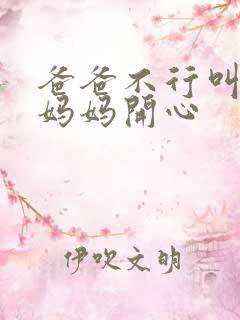 爸爸不行叫
妈妈開心
伊吹文明